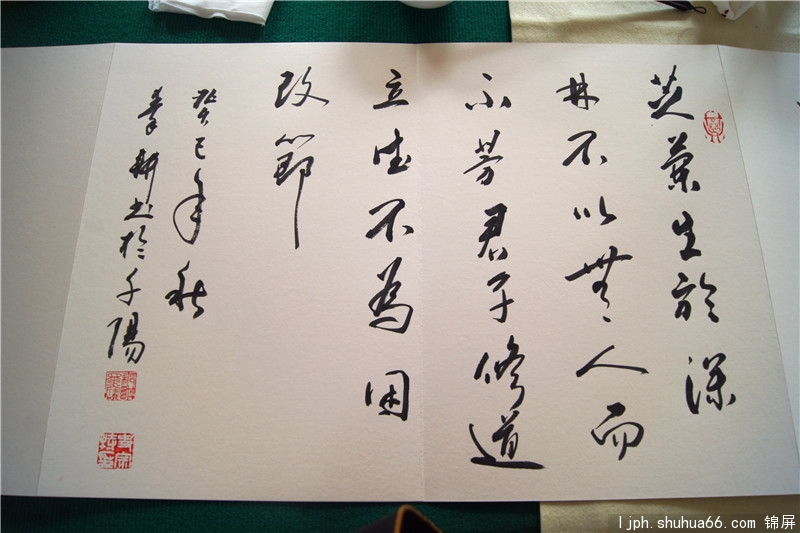 芝蘭生於深
林不以無人而
不芳君子修道
立德不為困
改節
癸巳年秋
春耕書於千陽
ljph.shuhua66.com 锦屏